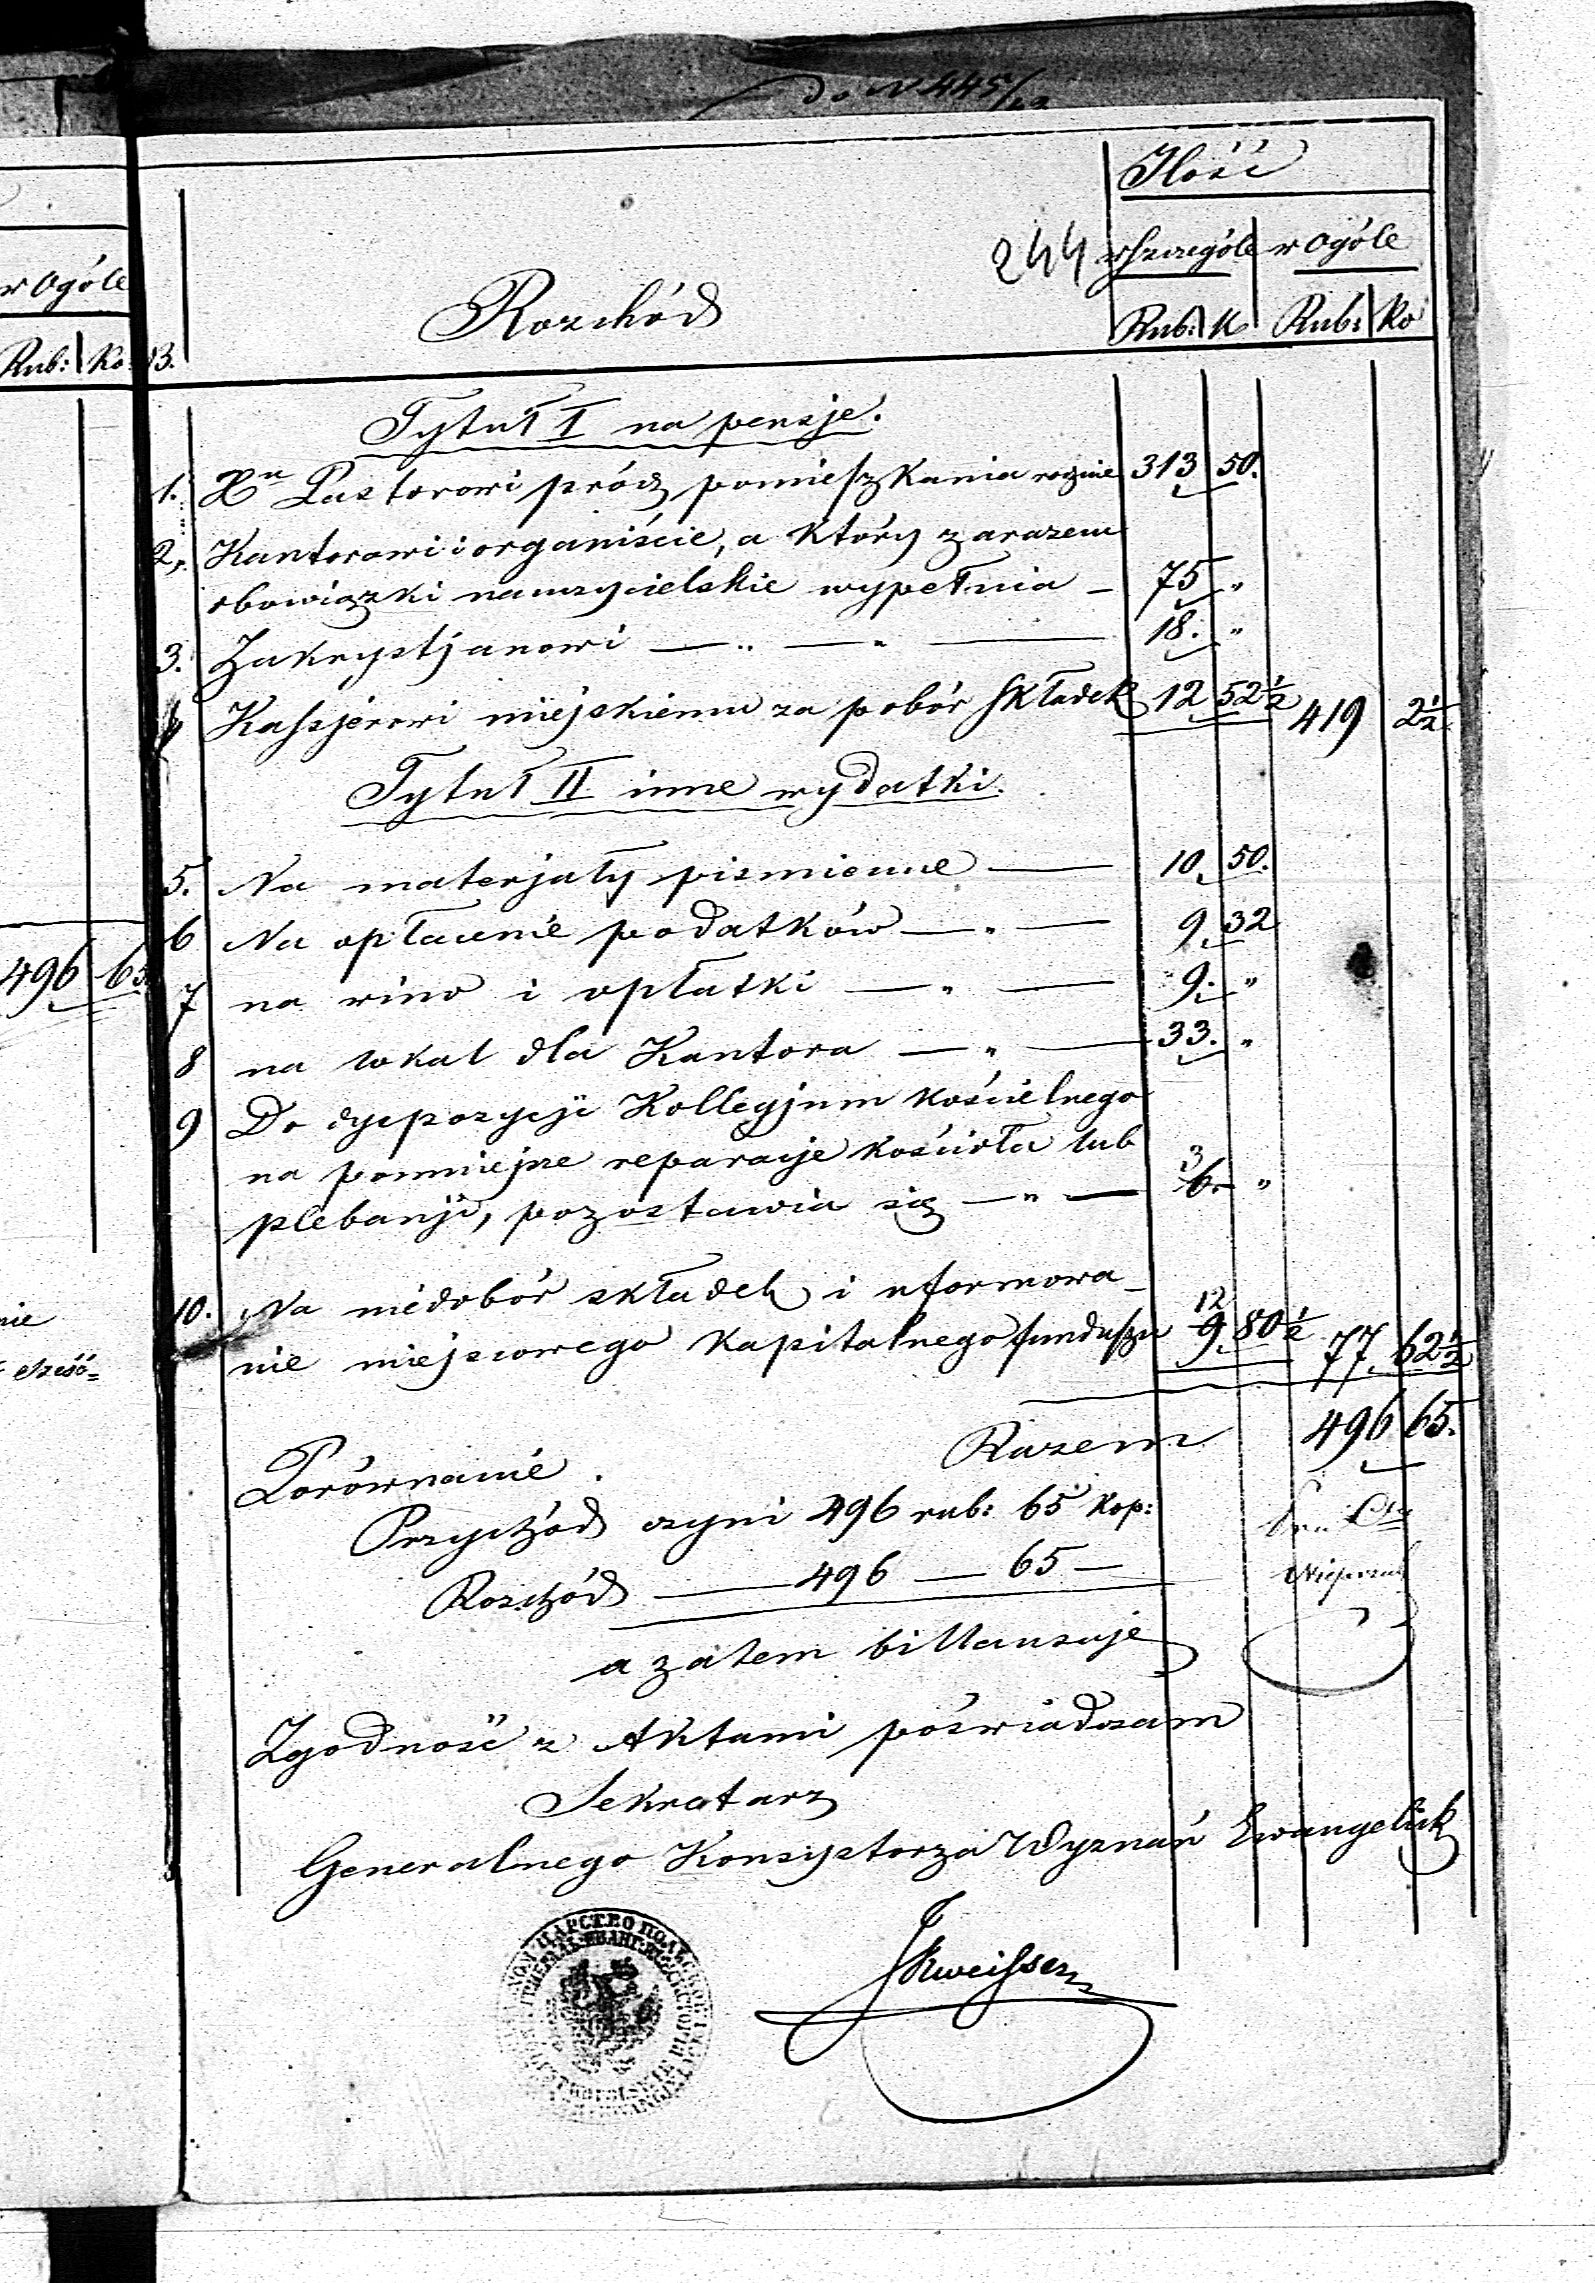 do N 445/
Ilość
244 w szczególe w Ogóle
w Ogóle
Rozchód
Rub: K Rub: Ko
Rub: Ko: 13.
Tytuł I na pensje.
1. Xu Pastorowi prócz pomieszkania rocznie 313 50.
2. Kantorowi i organiście, a który zarazem
obowiązki nauczycielskie wypełnia – 75 "
3. Zakrystjanowi — " — " — 18. "
4 Kassjerowi miejskiemu za pobór składek 12 52½ 419 2½
Tytuł II inne wydatki.
5. Na materjały pismienne — 10 50.
6 Na opłacenie podatków — " — 9 32
496 65
7 na wino i opłatki — " — 9. "
8 na lokal dla Kantora — " — 33. "
9 Do dyspozycji Kollegjum kościelnego
na pomniejsze reparacje kościoła lub
plebanji, pozostawia się — " — 3 6. "
10. Na niedobór składek i uformowa-
nie miejscowego kapitalnego funduszu 12 9 80½ 77 62½
nie
Razem 496 65.
Porównanie.
Przychód czyni 496 rub: 65 kop:
Rozchód — 496 — 65 —
a zatem billansuje
Zgodność z Aktami poświadczam
Sekretarz
Generalnego Konsystorza Wyznań Ewangelick
ЦАРСТВО ПОЛЬСКОЕ